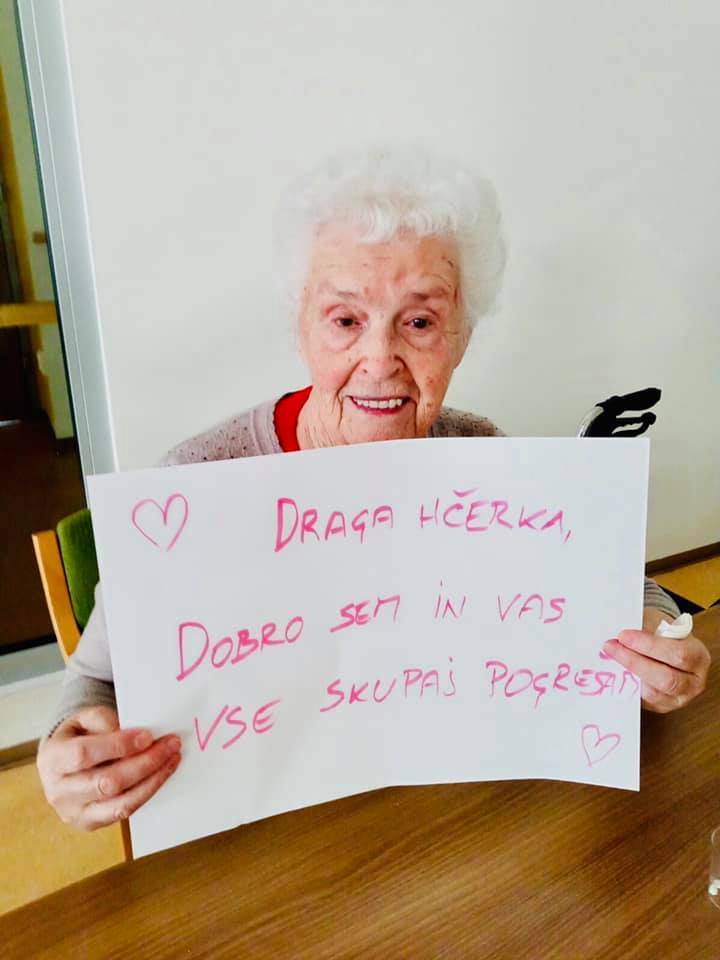 DRAGA HČERKA,
DOBRO SEM IN VAS
VSE SKUPAJ POGREŠAM